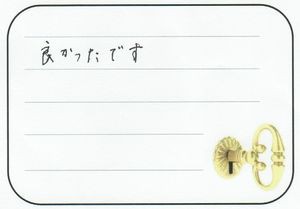 良かったです